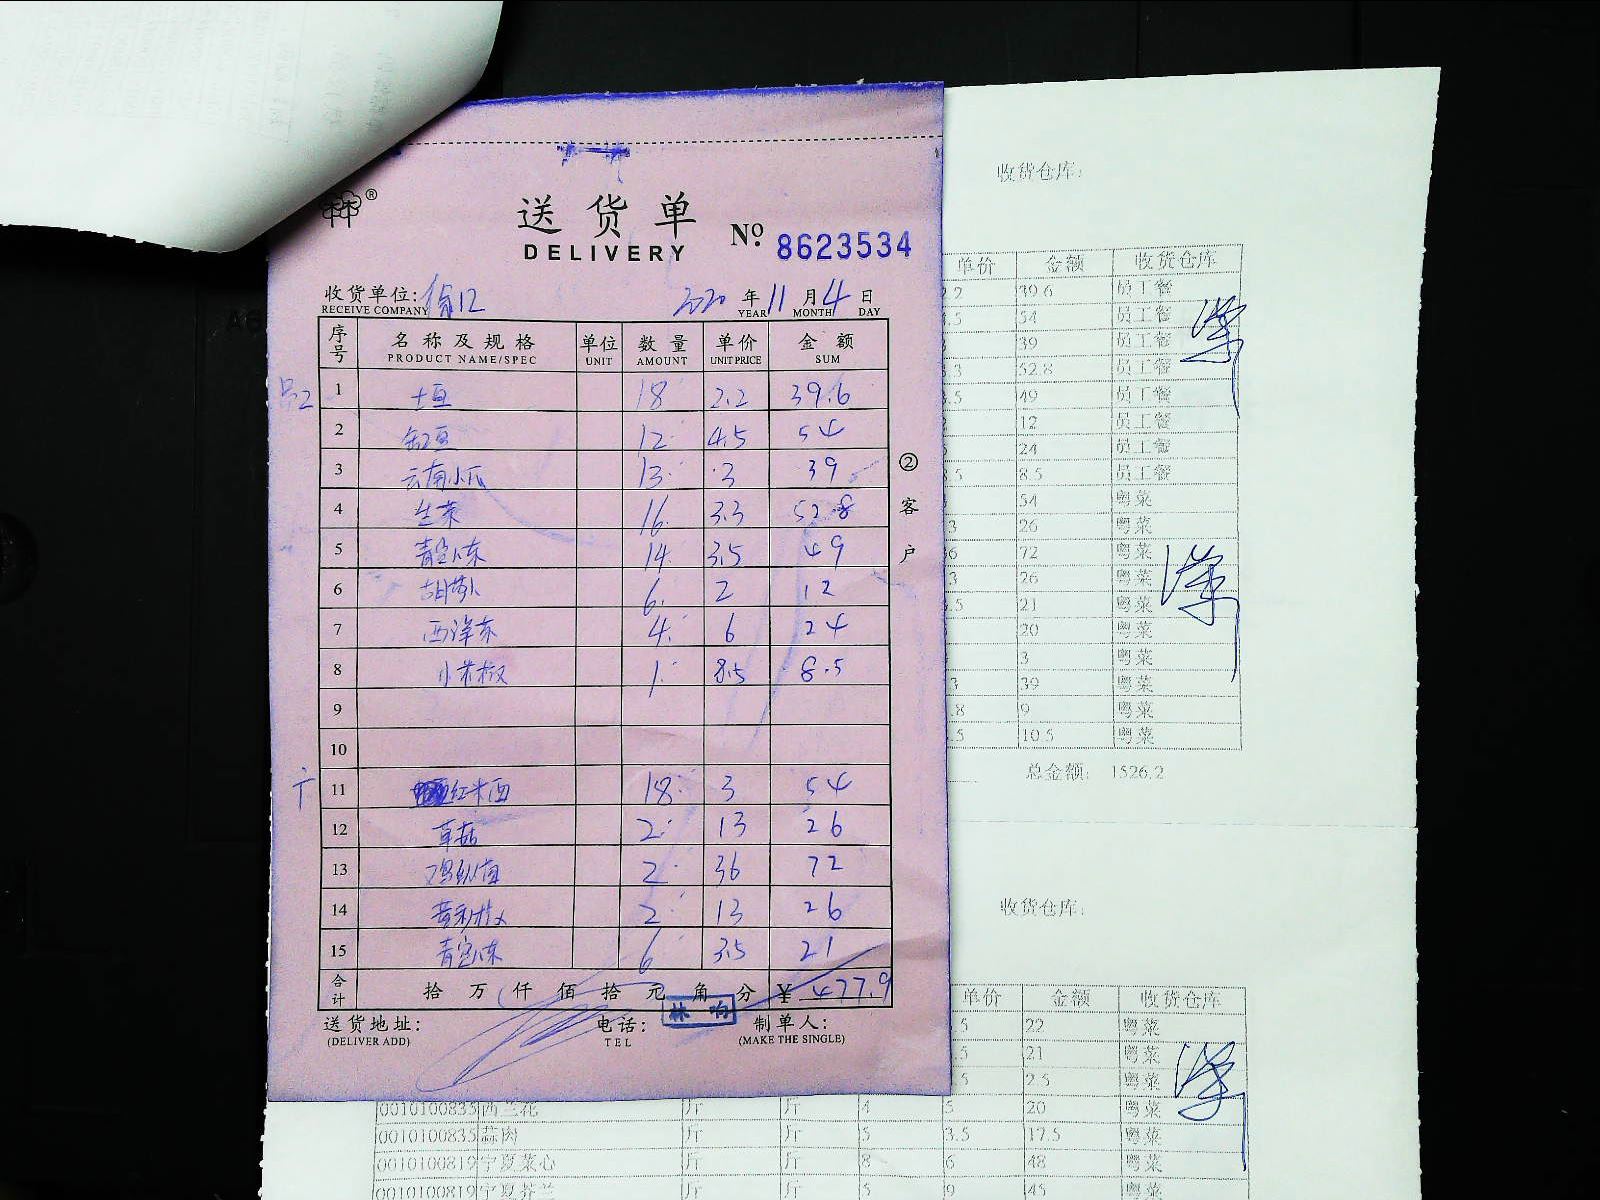 送货单
DELIVERY
№ 8623534
收货单位:
RECEIVE COMPANY
2020 年 11 月 4 日
YEAR MONTH DAY
序号 名称及规格 单位 数量 单价 金额
PRODUCT NAME/SPEC UNIT AMOUNT UNIT PRICE SUM
1 土豆 18 2.2 39.6
2 12 4.5 54
3 云南小瓜 13 3 39
4 生菜 16 3.3 52.8
5 14 3.5 49
6 胡萝卜 6 2 12
7 西洋菜 4 6 24
8 小米椒 1 8.5 8.5
9
10
11 18 3 54
12 草菇 2 13 26
13 2 36 72
14 2 13 26
15 6 3.5 21
合计 拾 万 仟 佰 拾 元 角 分 ¥ 477.9
送货地址: 电话: 制单人:
(DELIVER ADD) TEL (MAKE THE SINGLE)
②客户
收货仓库:
单价 金额 收货仓库
39.6 员工餐
54 员工餐
39 员工餐
52.8 员工餐
49 员工餐
12 员工餐
24 员工餐
8.5 员工餐
54 粤菜
26 粤菜
72 粤菜
26 粤菜
21 粤菜
20 粤菜
3 粤菜
39 粤菜
9 粤菜
10.5 粤菜
总金额: 1526.2
收货仓库:
单价 金额 收货仓库
22 粤菜
21 粤菜
2.5 粤菜
0010100833 西兰花 斤 斤 4 5 20 粤菜
0010100835 蒜肉 斤 斤 5 3.5 17.5 粤菜
0010100819 宁夏菜心 斤 斤 8 6 48 粤菜
0010100819 宁夏芥兰 斤 斤 5 9 45 粤菜